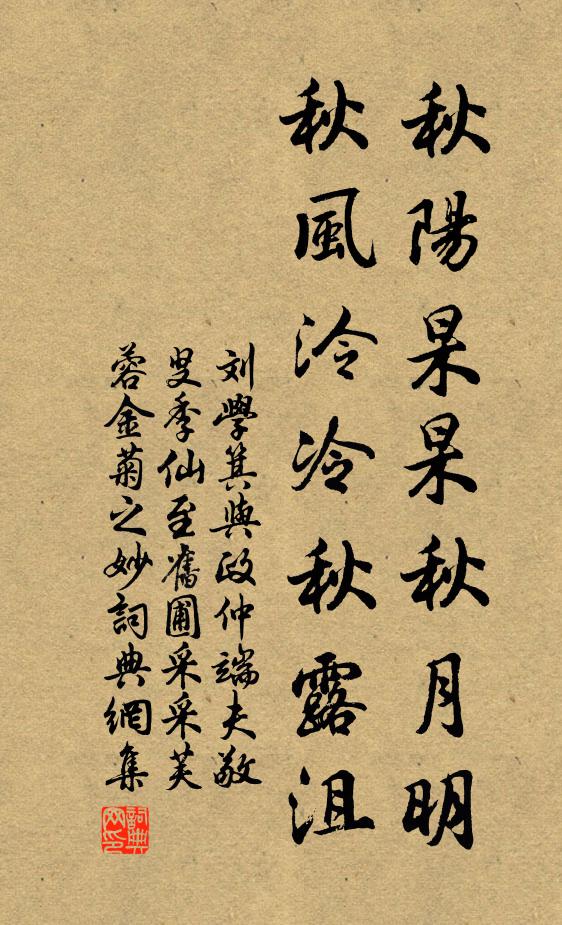 秋陽杲杲秋月明
秋風泠冷秋露沮
刘學箕與段仲端夫敬
叟季仙至舊圃采采芙
蓉金菊之妙詞典網集
詞典
网印